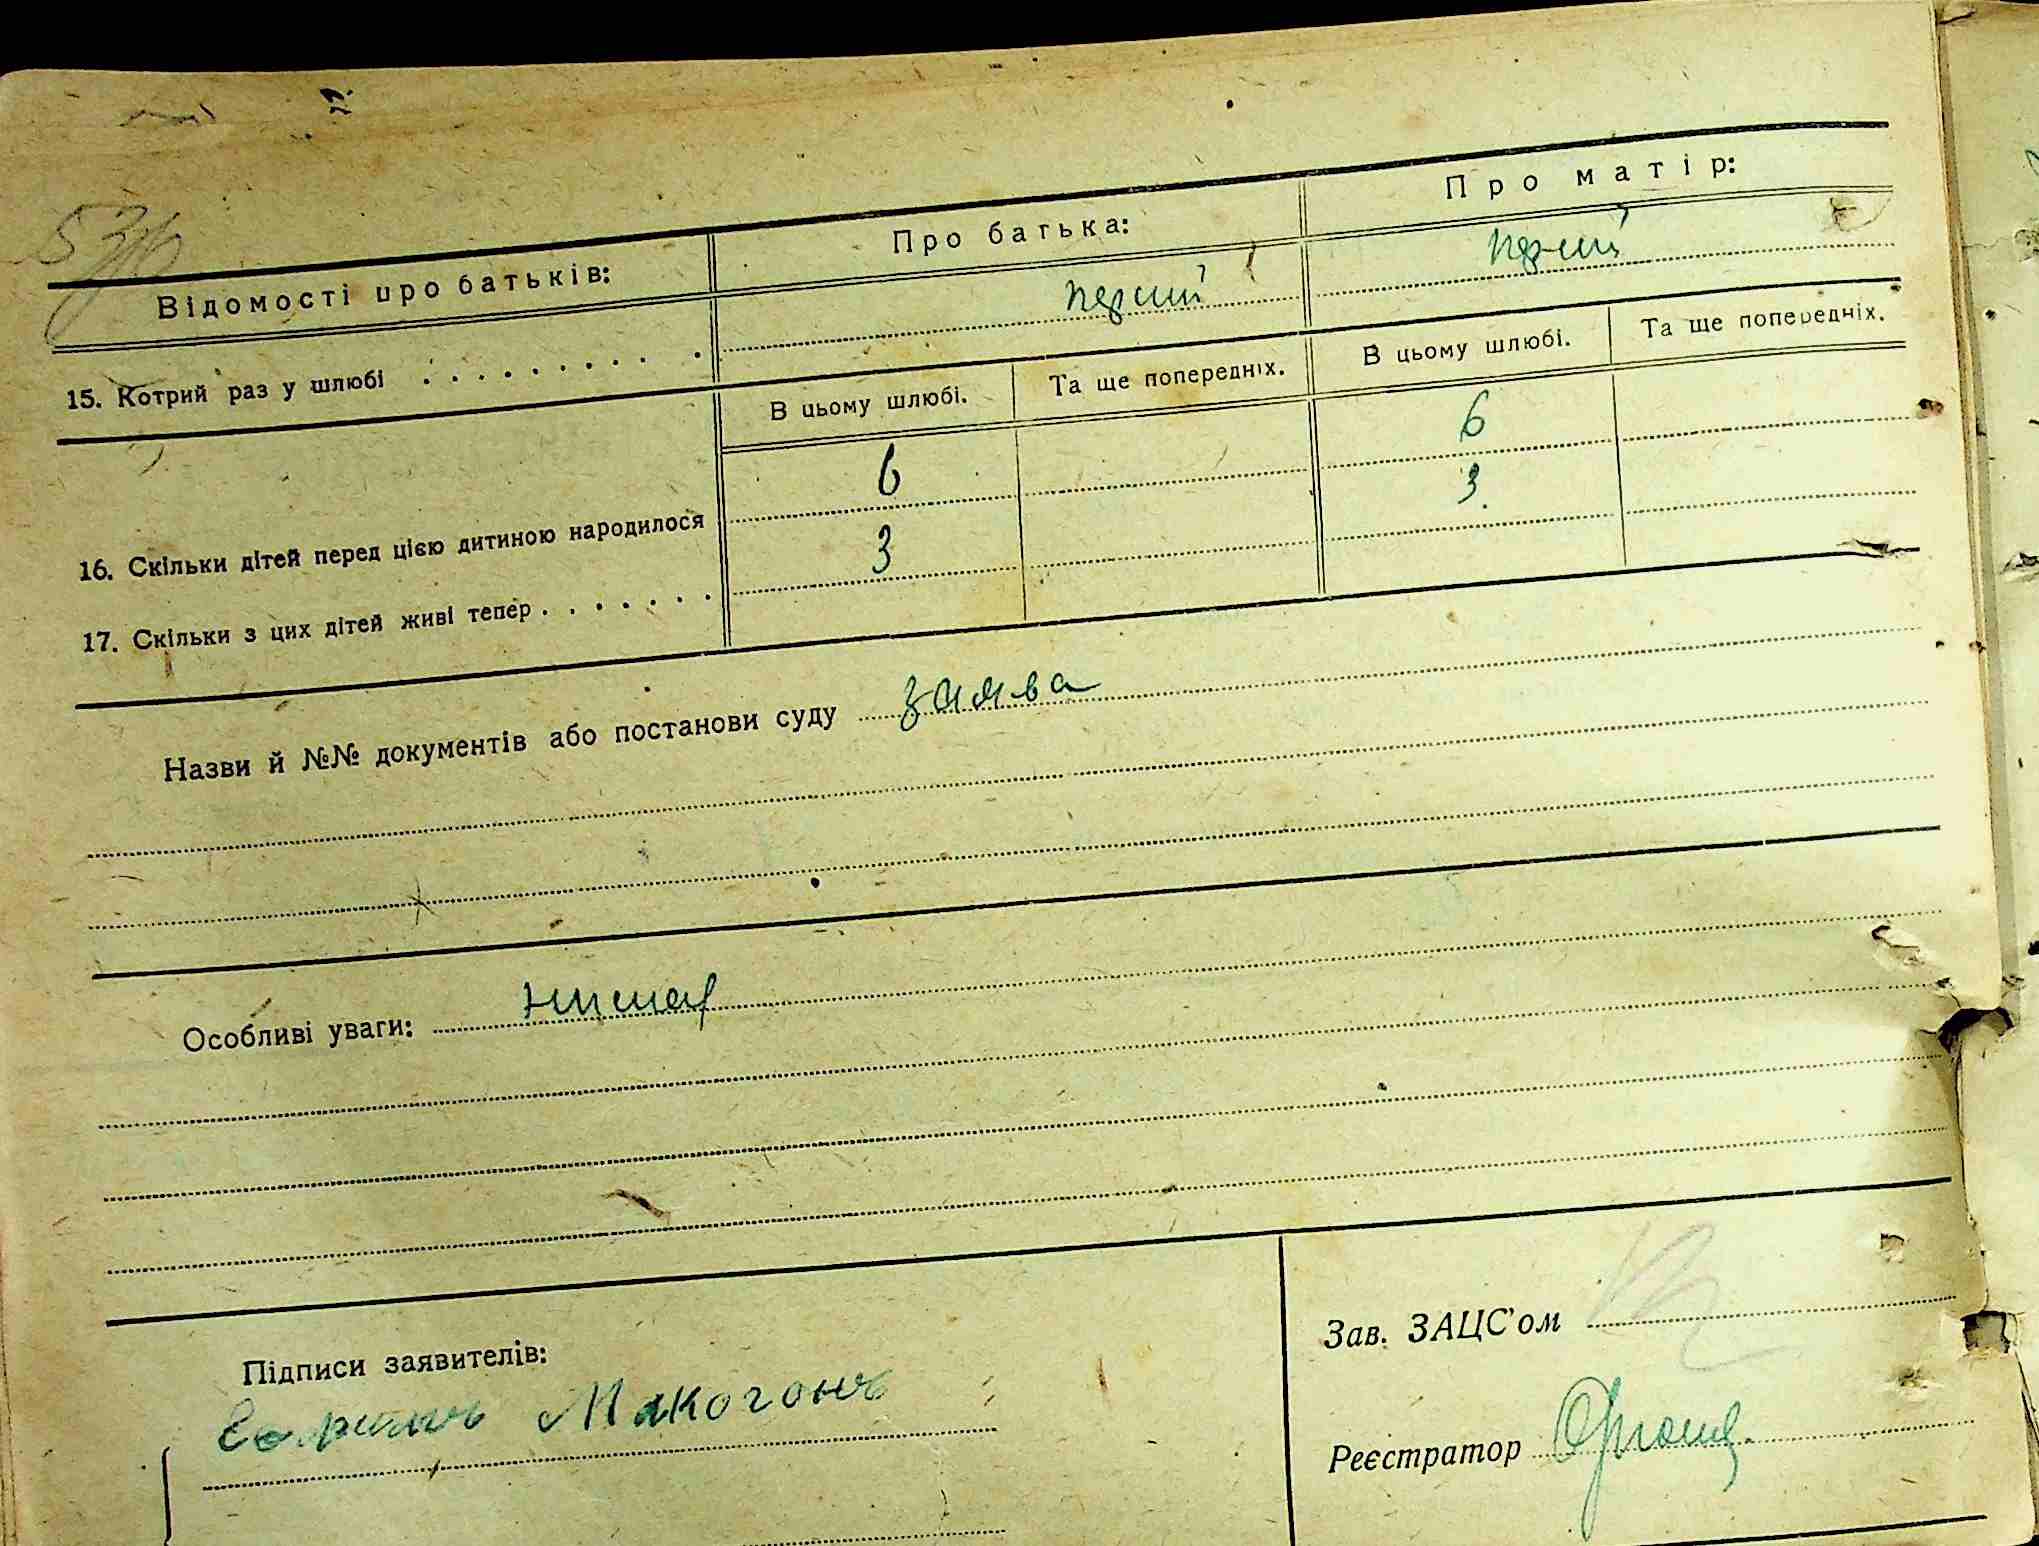 Відомості про батьків:
Про батька:
Про матір:
15. Котрий раз у шлюбі
перший
перший
В цьому шлюбі.
Та ще попередніх.
В цьому шлюбі.
Та ще попередніх.
16. Скільки дітей перед цією дитиною народилося
6
6
17. Скільки з цих дітей живі тепер
3
3
Назви й №№ документів або постанови суду заява
Особливі уваги: немає
Підписи заявителів:
Макогонъ
Зав. ЗАЦС'ом
Реєстратор